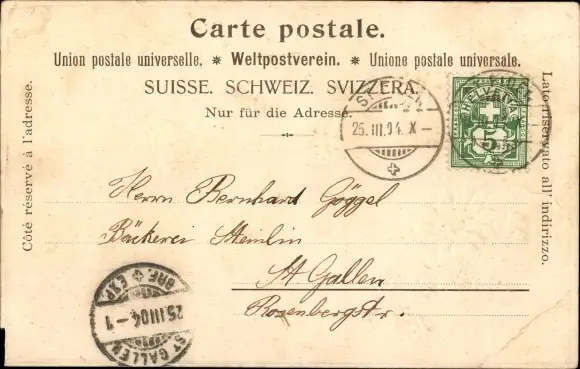 Carte postale.
Union postale universelle. * Weltpostverein. * Unione postale universale.
SUISSE. SCHWEIZ. SVIZZERA.
Nur für die Adresse.
Côté réservé à l'adresse.
Lato riservato all' indirizzo.
25.III.04.X–
HELVETIA
5
Herrn Bernhard Göggel
Bäckerei Steinlin
St. Gallen
Rosenbergstr.
BRF. EXP.
25.III 04.–1
ST GALLEN